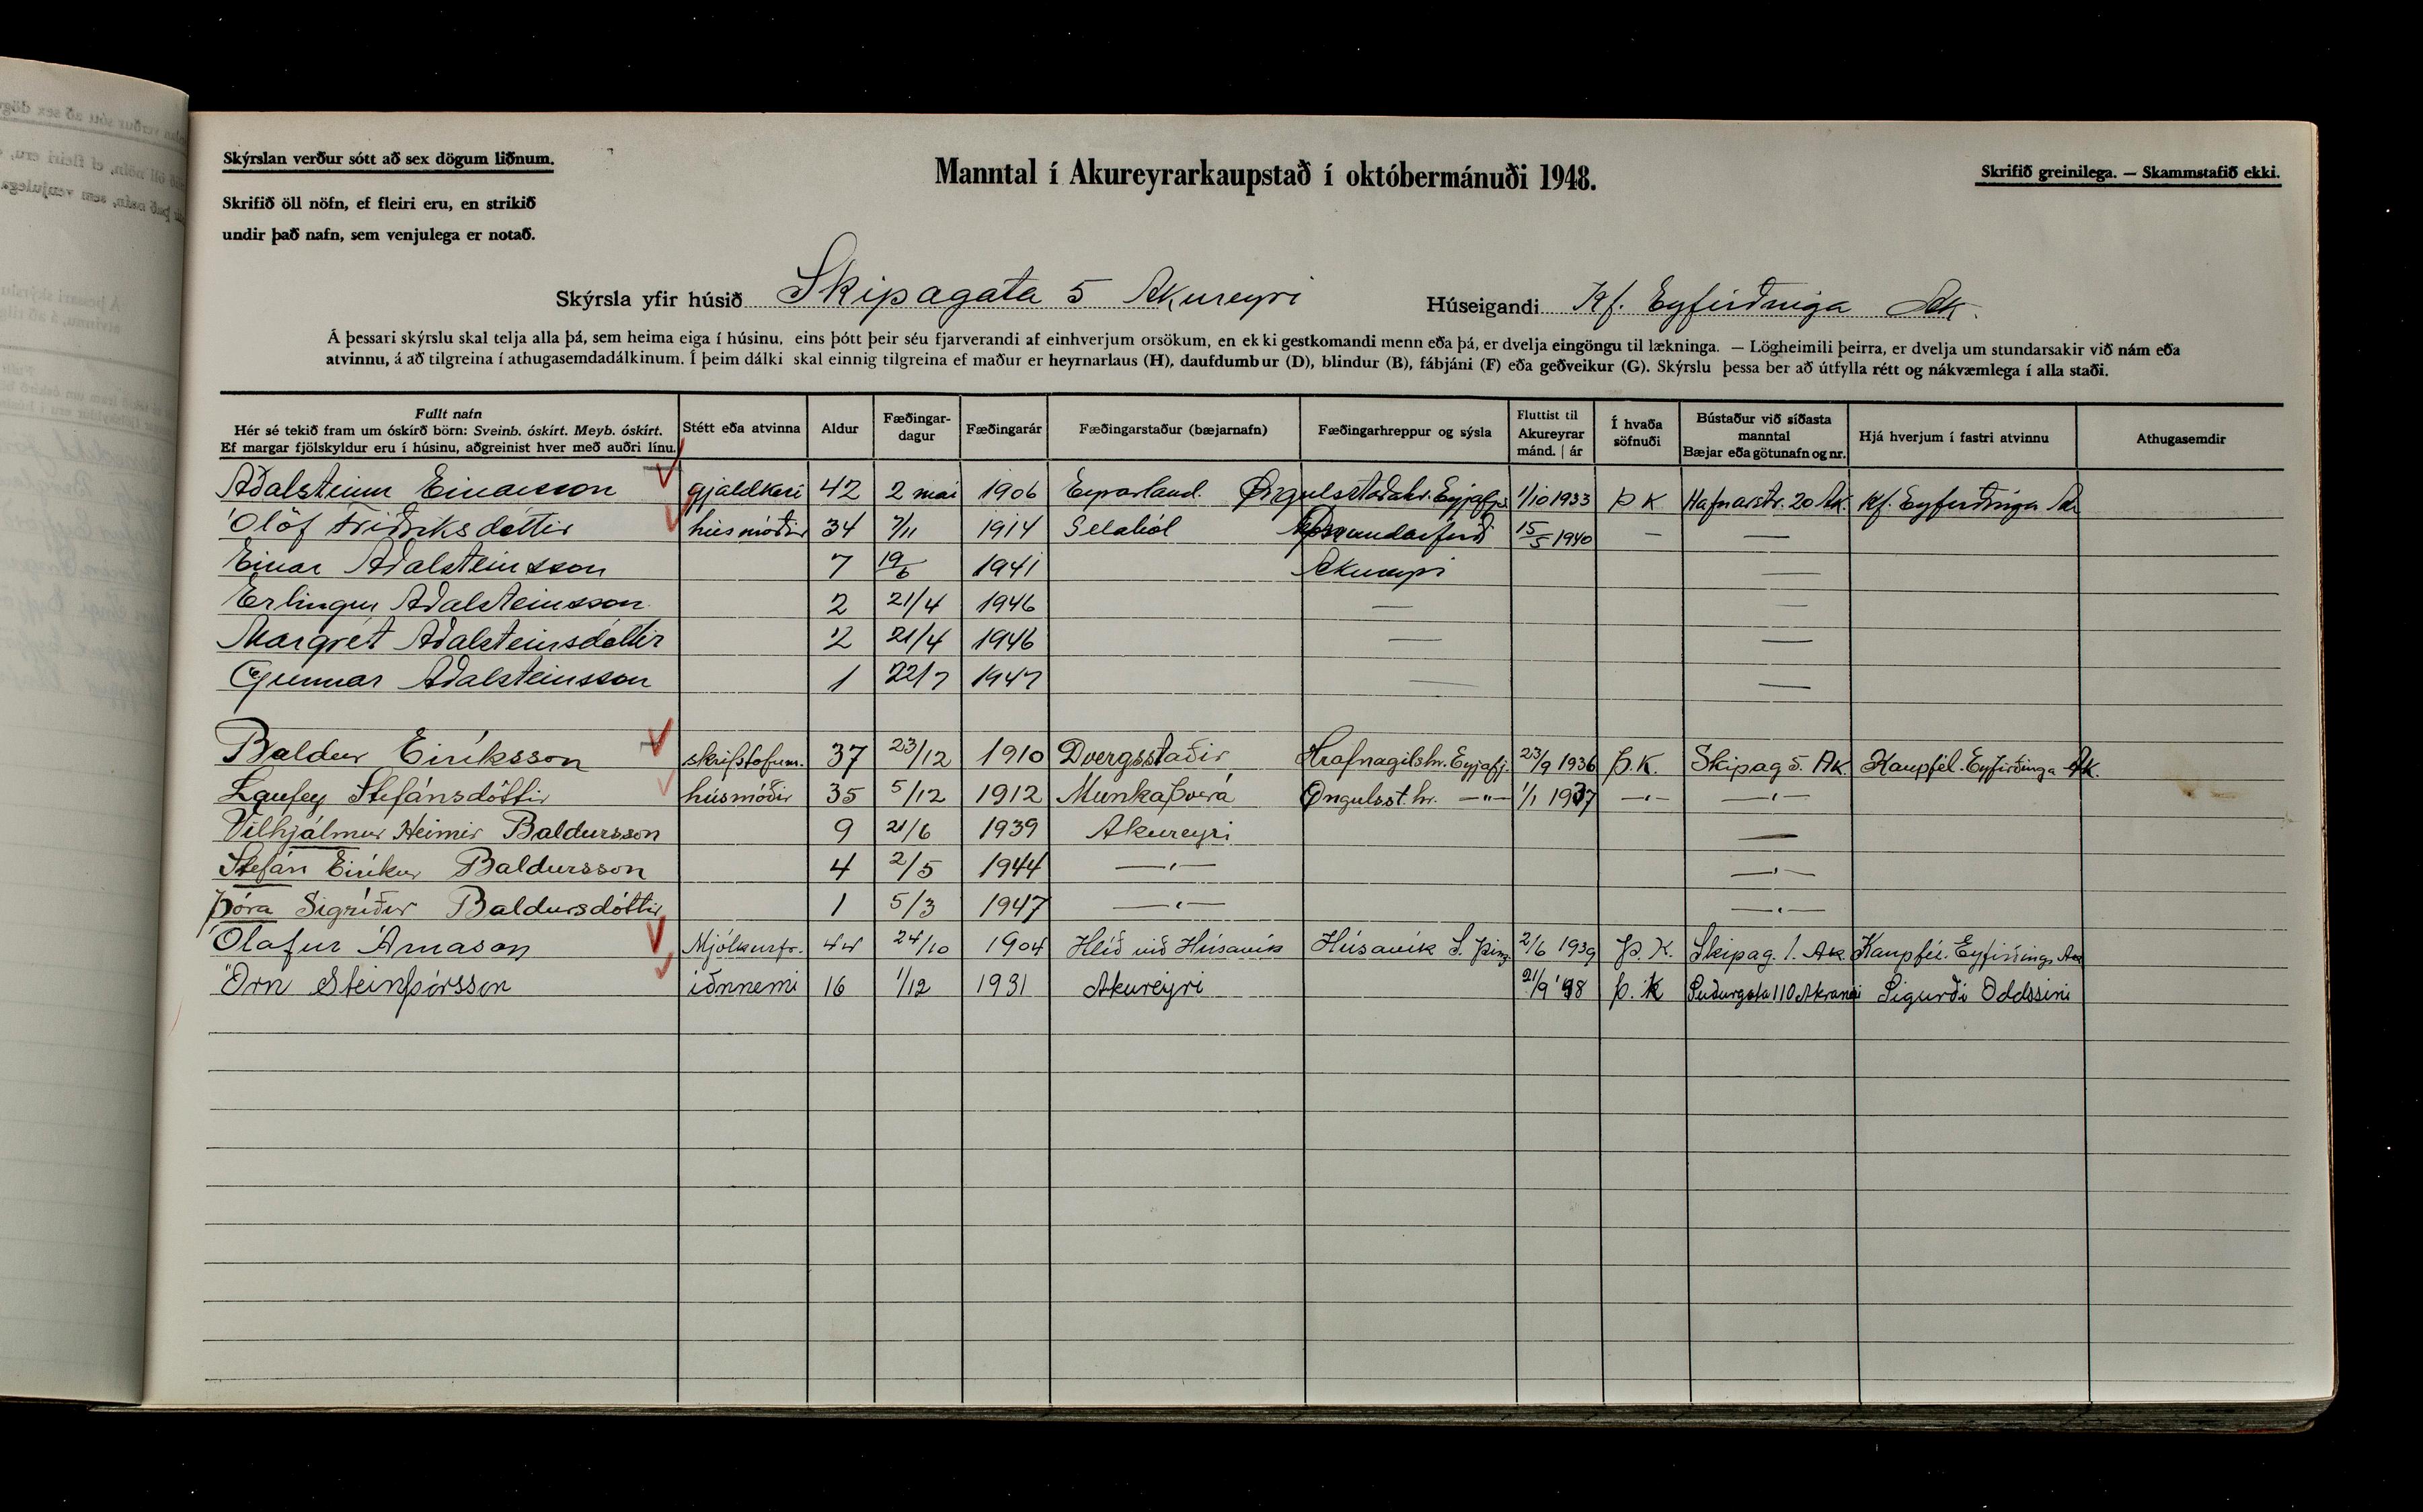 Skýrslan verður sótt að sex dögum liðnum.
Skrifið öll nöfn, ef fleiri eru, en strikið
undir það nafn, sem venjulega er notað.
Manntal í Akureyrarkaupstað í októbermánuði 1948.
Skrifið greinilega. — Skammstafið ekki.
Skýrsla yfir húsið Skipagata 5 Akureyri Húseigandi Kf. Eyfirðinga Ak.
Á þessari skýrslu skal telja alla þá, sem heima eiga í húsinu, eins þótt þeir séu fjarverandi af einhverjum orsökum, en ekki gestkomandi menn eða þá, er dvelja eingöngu til lækninga. — Lögheimili þeirra, er dvelja um stundarsakir við nám eða
atvinnu, á að tilgreina í athugasemdadálkinum. Í þeim dálki skal einnig tilgreina ef maður er heyrnarlaus (H), daufdumbur (D), blindur (B), fábjáni (F) eða geðveikur (G). Skýrslu þessa ber að útfylla rétt og nákvæmlega í alla staði.
Fullt nafn
Hér sé tekið fram um óskírð börn: Sveinb. óskírt. Meyb. óskírt.
Ef margar fjölskyldur eru í húsinu, aðgreinist hver með auðri línu.
Stétt eða atvinna
Aldur
Fæðingar-
dagur
Fæðingarár
Fæðingarstaður (bæjarnafn)
Fæðingarhreppur og sýsla
Fluttist til
Akureyrar
mánd. | ár
Í hvaða
söfnuði
Bústaður við síðasta
manntal
Bæjar eða götunafn og nr.
Hjá hverjum í fastri atvinnu
Athugasemdir
Aðalsteinn Einarsson gjaldkeri 42 2 mai 1906 Eyrarland. Öngulsstaðahr. Eyjafjs 1/10 1933 Þ K Hafnarstr. 20 Ak. Kf. Eyfirðinga Ak
Ólöf Friðriksdóttir húsmóðir 34 7/11 1914 Selaból Önundarfirði 15/5 1940 — —
Einar Aðalsteinsson 7 19/6 1941 Akureyri —
Erlingur Aðalsteinsson 2 21/4 1946 — —
Margrét Aðalsteinsdóttir 2 21/4 1946 — —
Gunnar Aðalsteinsson 1 22/7 1947 — —
Baldur Eiríksson skrifstofum. 37 23/12 1910 Dvergsstaðir Hrafnagilshr. Eyjafj. 23/9 1936 Þ.K. Skipag 5. Ak. Kaupfél. Eyfirðinga Ak.
Laufey Stefánsdóttir húsmóðir 35 5/12 1912 Munkaþverá Öngulsst. hr. —"— 1/1 1937 —"— —"—
Vilhjálmur Heimir Baldursson 9 21/6 1939 Akureyri —
Stefán Eiríkur Baldursson 4 2/5 1944 —"— —"—
Þóra Sigríður Baldursdóttir 1 5/3 1947 —"— —"—
Ólafur Árnason Mjólkurfr. 44 24/10 1904 Hlíð við Húsavík Húsavík S. Þing 2/6 1939 Þ. K. Skipag. 1. Ak. Kaupfél. Eyfirðinga Ak
Örn Steinþórsson iðnnemi 16 1/12 1931 Akureyri 21/9 '48 Þ. K Suðurgata 110 Akranesi Sigurði Oddssini